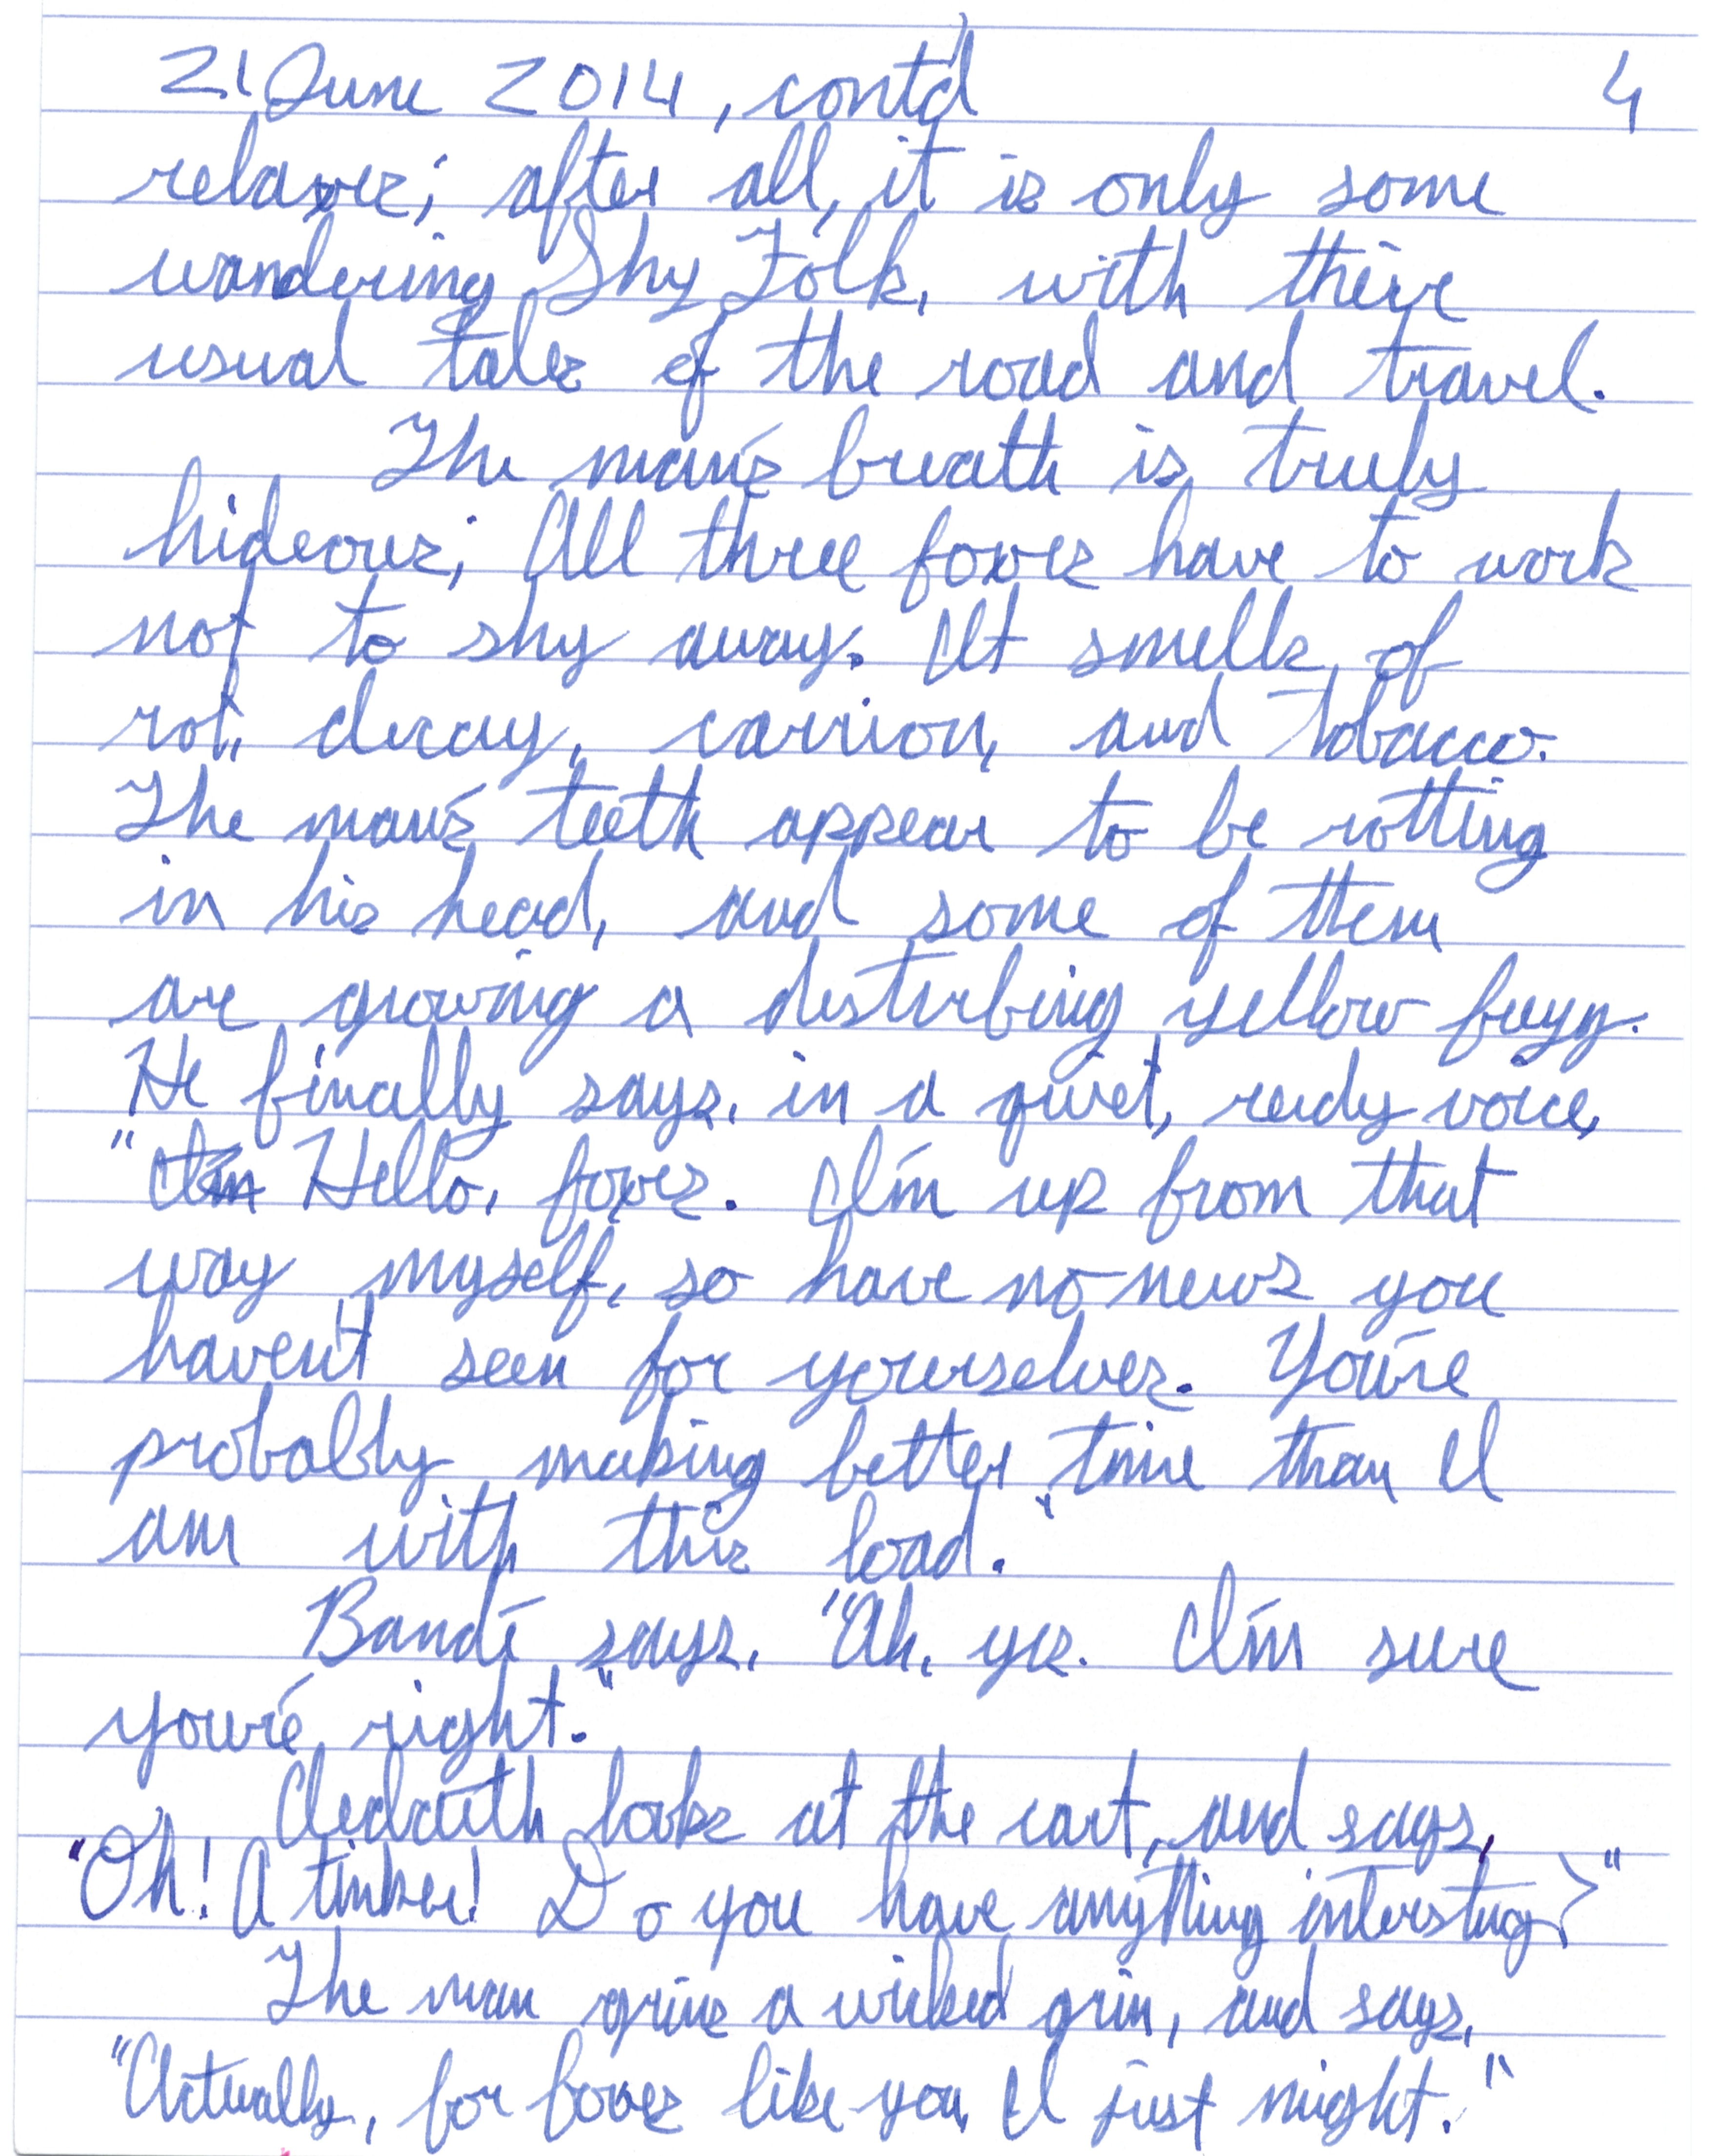 21 June 2014, cont'd 4
relaxes; after all, it is only some
wandering Shy Folk, with their
usual tales of the road and travel.
The man's breath is truly
hideous; All three foxes have to work
not to shy away. It smells of
rot, decay, carrion, and tobacco.
The man's teeth appear to be rotting
in his head, and some of them
are growing a disturbing yellow fuzz.
He finally says, in a quiet, reedy voice,
"I'm Hello, foxes. I'm up from that
way myself, so have no news you
haven't seen for yourselves. You're
probably making better time than I
am with this load."
Bandi says, "Ah, yes. I'm sure
you're right."
looks at the cart, and says,
"Oh! A tinker! Do you have anything interesting?"
The man grins a wicked grin, and says,
"Actually, for foxes like you, I just might."